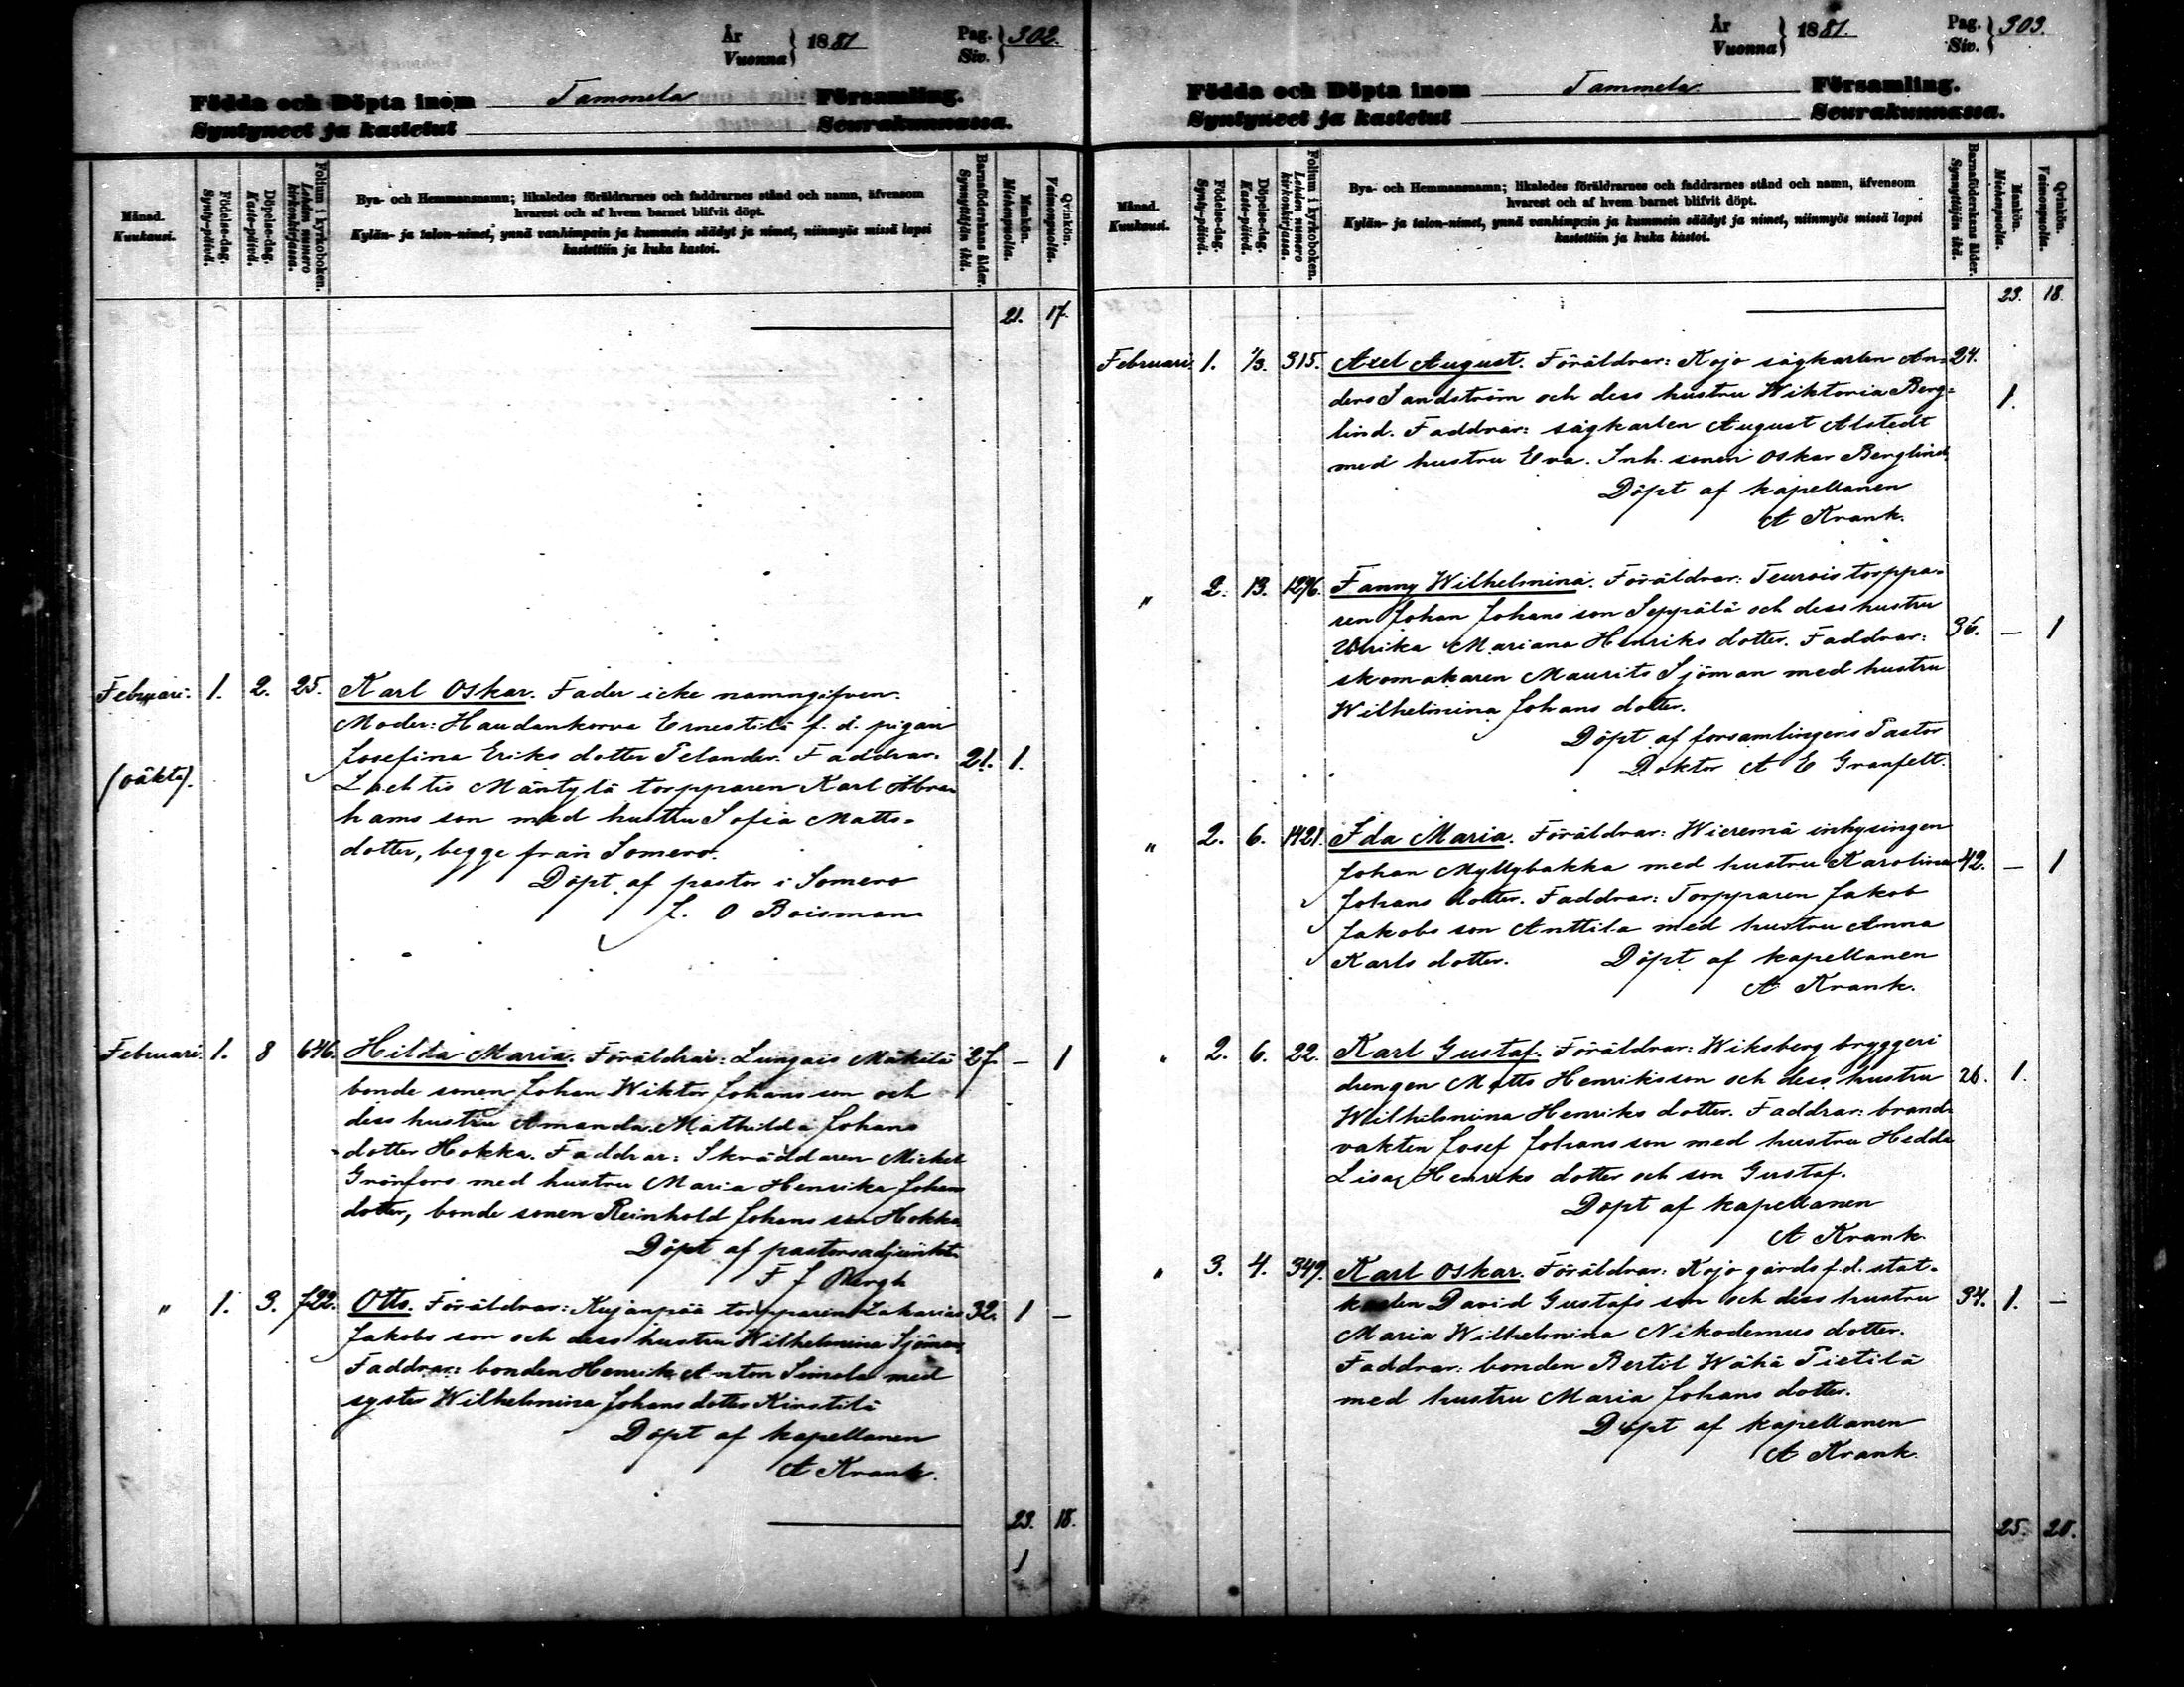 År
Vuonna } 1881
Pag.
Siv. } 302.
Födda och Döpta inom Tammela Församling.
Syntyneet ja kastetut Seurakunnassa.
Månad.
Kuukausi.
Födelse-dag.
Synty-päivä.
Döpelse-dag.
Kaste-päivä.
Folium i kyrkoboken.
Lehden numero kirkonkirjassa.
Bya- och Hemmansnamn; likaledes föräldrarnes och faddrarnes stånd och namn, äfvensom
hvarest och af hvem barnet blifvit döpt.
Kylän- ja talon-nimet, ynnä vanhimpain ja kummein säädyt ja nimet, niinmyös missä lapsi
kastettiin ja kuka kastoi.
Barnaföderskans ålder.
Synnyttäjän ikä.
Mankön.
Miehenpuolta.
Qvinkön.
Vaimonpuolta.
21. 17.
Februari. 1. 2. 25. Karl Oskar. Fader icke namngifven.
Moder: Haudankorva Ernestilä f. d. pigan
Josefina Eriks dotter Telander. Faddrar: 21. 1.
(oäkta).
Lachtis Mäntylä torpparen Karl Abra-
hams son med hustru Sofia Matts-
dotter, begge från Somero.
Döpt af pastor i Somero
J. O Boisman
Februari. 1. 8 646. Hilda Maria. Föräldrar: Lungais Mäkilä 27. — 1
bonde sonen Johan Wiktor Johans son och
dess hustru Amanda Mathilda Johans
dotter Hokka. Faddrar: Skräddaren Mickel
Grönfors med hustru Maria Henrika Johans
dotter, bonde sonen Reinhold Johans son Hokka
Döpt af pastorsadjunkt.
F J Bergh
" 1. 3. 722. Otto. Föräldrar: Kujanpää torpparen Zakarias 32. 1 —
Jakobs son och dess hustru Wilhelmina Sjöman,
Faddrar: bonden Henrik Anton Simola med
syster Wilhelmina Johans dotter Kirstilä
Döpt af kapellanen
A Krank.
23. 18.
1
År
Vuonna } 1881.
Pag.
Siv. } 303.
Födda och Döpta inom Tammela Församling.
Syntyneet ja kastetut Seurakunnassa.
Månad.
Kuukausi.
Födelse-dag.
Synty-päivä.
Döpelse-dag.
Kaste-päivä.
Folium i kyrkoboken.
Lehden numero kirkonkirjassa.
Bya- och Hemmansnamn; likaledes föräldrarnes och faddrarnes stånd och namn, äfvensom
hvarest och af hvem barnet blifvit döpt.
Kylän- ja talon-nimet, ynnä vanhimpain ja kummein säädyt ja nimet, niinmyös missä lapsi
kastettiin ja kuka kastoi.
Barnaföderskans ålder.
Synnyttäjän ikä.
Mankön.
Miehenpuolta.
Qvinkön.
Vaimonpuolta.
23. 18.
Februari. 1. 1/3. 315. Axel August. Föräldrar: Kojo sågkarlen An- 24.
ders Sandström och dess hustru Wiktoria Berg- 1.
lind. Faddrar: sågkarlen August Alstedt
med hustru Eva. Inh. sonen Oskar Berglind.
Döpt af kapellanen
A Krank.
" 2. 13. 1296. Fanny Wilhelmina. Föräldrar: Teurois torppa-
ren Johan Johans son Seppälä och dess hustru
Ulrika Mariana Henriks dotter. Faddrar: 36. — 1
skomakaren Maurits Sjöman med hustru
Wilhelmina Johans dotter.
Döpt af forsamlingens Pastor
Doktor A E Granfelt.
" 2. 6. 1421. Ida Maria. Föräldrar: Wieremä inhysingen
Johan Myllybakka med hustru Karolina 42. — 1
Johans dotter. Faddrar: Torpparen Jakob
Jakobs son Anttila med hustru Anna
Karls dotter. Döpt af kapellanen
A Krank.
" 2. 6. 22. Karl Gustaf. Föräldrar: Wiksberg bryggeri
drengen Matts Henriksson och dess hustru 26. 1.
Wilhelmina Henriks dotter. Faddrar: brand-
vakten Josef Johans son med hustru Hedda
Lisa Henriks dotter och son Gustaf.
Döpt af kapellanen
A Krank.
" 3. 4. 349. Karl Oskar. Föräldrar: Kojo gårds f.d. stat-
karlen David Gustafs son och dess hustru 34. 1. —
Maria Wilhelmina Nikodemus dotter.
Faddrar: bonden Bertil Wähä Pietilä
med hustru Maria Johans dotter.
Döpt af kapellanen
A Krank.
25. 20.